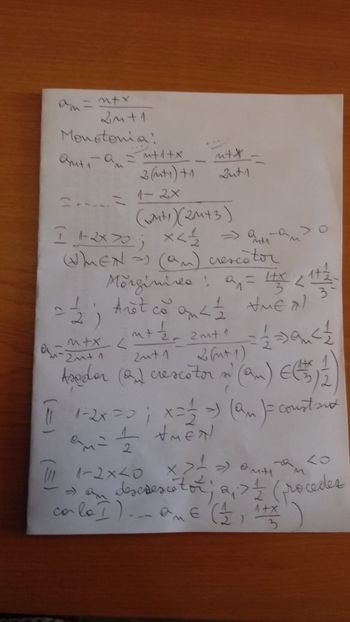 aₙ = (n+x)/(2n+1)
Monotonia:
aₙ₊₁ - aₙ = (n+1+x)/(2(n+1)+1) - (n+x)/(2n+1) =
= ..... = (1-2x)/((2n+1)(2n+3))
I 1-2x>0 ; x<1/2 ⇒ aₙ₊₁-aₙ > 0
(∀)n∈ℕ ⇒ (aₙ) crescător
Mărginirea : a₁ = (1+x)/3 < (1+1/2)/3 =
= 1/2 ; Arăt că aₙ<1/2 ∀n∈ℕ
aₙ = (n+x)/(2n+1) < (n+1/2)/(2n+1) = (2n+1)/(2(2n+1)) = 1/2 ⇒ aₙ<1/2
Așadar (aₙ) crescător și (aₙ) ∈ ((1+x)/3, 1/2)
II 1-2x=0 ; x=1/2 ⇒ (aₙ) = constant
aₙ = 1/2 ∀n∈ℕ
III 1-2x<0 x>1/2 ⇒ aₙ₊₁-aₙ<0
⇒ aₙ descrescător; a₁>1/2 (procedez
ca la I) ... aₙ ∈ (1/2, (1+x)/3)